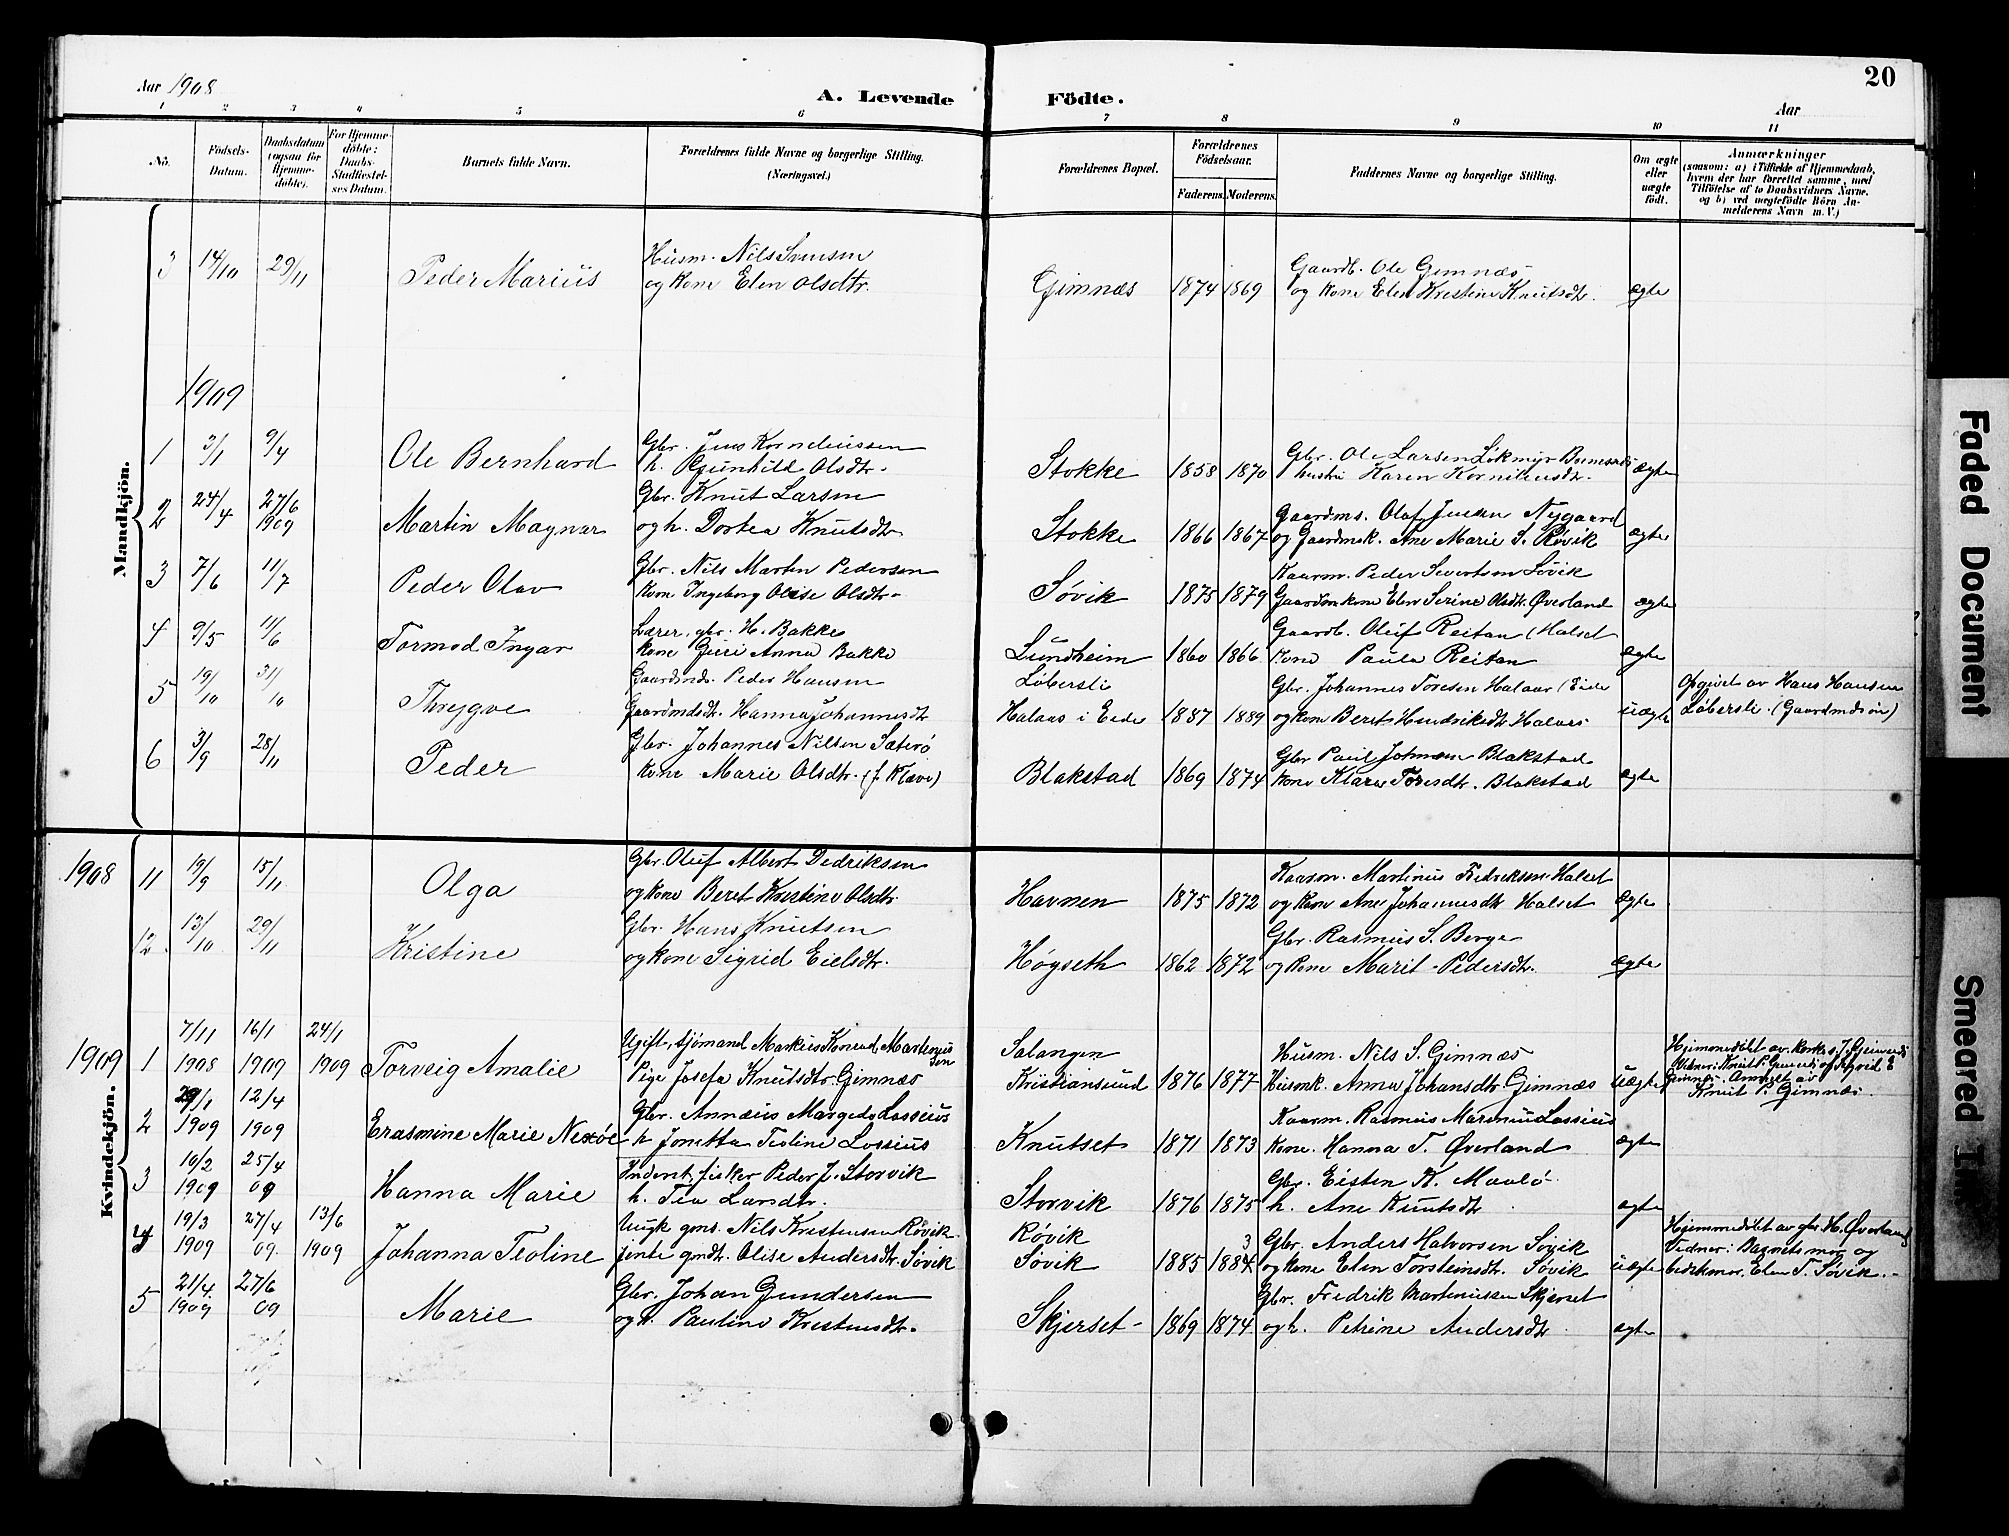 Aar 1908
A. Levende Födte.
20
Aar
1 2 3 4 5 6 7 8 9 10 11
No.
Födsels-
Datum.
Daabsdatum
(ogsaa för
Hjemme-
döbte).
For Hjemme-
döbte:
Daabs-
Stadfæstel-
ses Datum.
Barnets fulde Navn.
Forældrenes fulde Navne og borgerlige Stilling.
(Næringsvei.)
Forældrenes Bopæl.
Forældrenes
Födselsaar.
Faderens. Moderens.
Faddernes Navne og borgerlige Stilling.
Om ægte
eller
uægte
födt.
Anmærkninger
(saasom: a) i Tilfælde af Hjemmedaab,
hvem der har forrettet samme, med
Tilföielse af to Daabsvidners Navne,
og b) ved uægtefödte Börn An-
melderens Navn m. V.)
Mandkjön.
3 14/10 29/11 Peder Marius
Husm. Nils
og kone Elen Olsdtr.
Gimnæs 1874 1869
Gaardb. Ole Gimnæs
og kone Elen Kristine Knutsdtr.
ægte
1909
1 3/1 9/4 Ole Bernhard
Gbr. Jens Korneliussen
h. Gunhild Olsdtr.
Stokke 1858 1870
Gbr. Ole Larsen Løkmyr
hustru Karen Korneliusdtr.
ægte
2 24/4 27/6 1909 Martin Magnar
Gbr. Knut Larsen
og h. Dortea Knutsdtr
Stokke 1866 1867
Gaardms. Olaf Jensen Nygaard
og Gaardmsk. Ane Marie S. Røvik
ægte
3 7/6 11/7 Peder Olav
Gbr. Nils Martin Pedersen
kone Ingeborg Olise Olsdtr.
Søvik 1875 1879
Kaarm. Peder Sivertsen Søvik
Gaardmkone Elen Serine Olsdtr. Øverland
ægte
4 9/5 11/6 Tormod Ingar
Lærer, gbr. H. Bakke
kone Guri Anna Bakke
Lundheim 1860 1866
Gaardb. Oluf Reitan (Halset
kone Paula Reitan
ægte
5 19/10 31/10 Thrygve
Gaardmds. Peder Hansen
Gaardmdsdtr. Hanna Johannesdtr
Løbersli
Halaas i Eide 1887 1889
Gbr. Johannes Toresen Halaas (Eide
og kone Beret Hendriksdtr Halaas
uægte
Opgivet av Hans Hansen
Løbersli. (Gaardmdsøn)
6 3/9 28/11 Peder
Gbr. Johannes Nilsen Saterø
kone Marie Olsdtr. (f. Kleve)
Blakstad 1869 1874
Gbr Paul Johnsen Blakstad
kone Klara Toresdtr. Blakstad
ægte
Kvindekjön.
1908 11 19/9 15/11 Olga
Gbr. Oluf Albert Dedriksen
og kone Beret Kristine Olsdtr.
Havnen 1875 1872
Kaarm. Martinus Fedriksen Halset
og kone Ane Johannesdtr Halset
Ægte
12 13/10 29/11 Kristine
Gbr. Hans Knutsen
og kone Sigrid Eielsdtr.
Høgseth 1862 1872
Gbr. Rasmus S. Berge
og kone Marit Pedersdtr.
ægte
1909 1 7/11 1908 16/1 1909 24/1 1909 Torveig Amalie
Ugift, sjømand Markus Konrad Martinussen
Pige Josefa Knutsdtr. Gimnæs
Salangen
Kristiansund 1876 1877
Husm. Nils S. Gimnæs
Husmk. Anna Johansdtr Gimnæs
uægte
Hjemmedøbt av
Vidner: Knut P. Gimnæs og Sigrid E
Gimnæs. Anmeldt av
Knut P. Gimnæs.
2 29/1 1909 12/4 1909 Erasmine Marie Nexøe
Gbr. Annæus Margido Lossius
h. Jonetta Teoline Lossius
Knutset 1871 1873
Kaarm. Rasmus Lossius
kone. Hanna T. Øverland
ægte
3 10/2 1909 25/4 09 Hanna Marie
Inderst, fisker Peder J. Storvik
h. Tea Larsdtr.
Storvik 1876 1875
Gbr. Eisten K. Maalø
h. Ane Knutsdtr
ægte
4 19/3 1909 27/4 09. 13/6 1909 Johanna Teoline
Ungk gms. Nils Kristensen Røvik
jente gmdt. Olise Andersdtr. Søvik
Røvik
Søvik 1885 1884 3
Gbr. Anders Halvorsen Søvik
og kone Elen Torsteinsdtr. Søvik
uægte
Hjemmedøbt av gbr. H. Øverland
Vidner: Barnets mor og
bedstemor, Elen T. Søvik.
5 21/4 1909 27/6 09 Marie
Gbr. Johan Gundersen
og h. Pauline Kristensdtr.
Skjerset 1869 1874
Gbr. Fredrik Martinussen Skjerset
og h. Petrine Andersdtr
ægte
Faded Document
Smeared